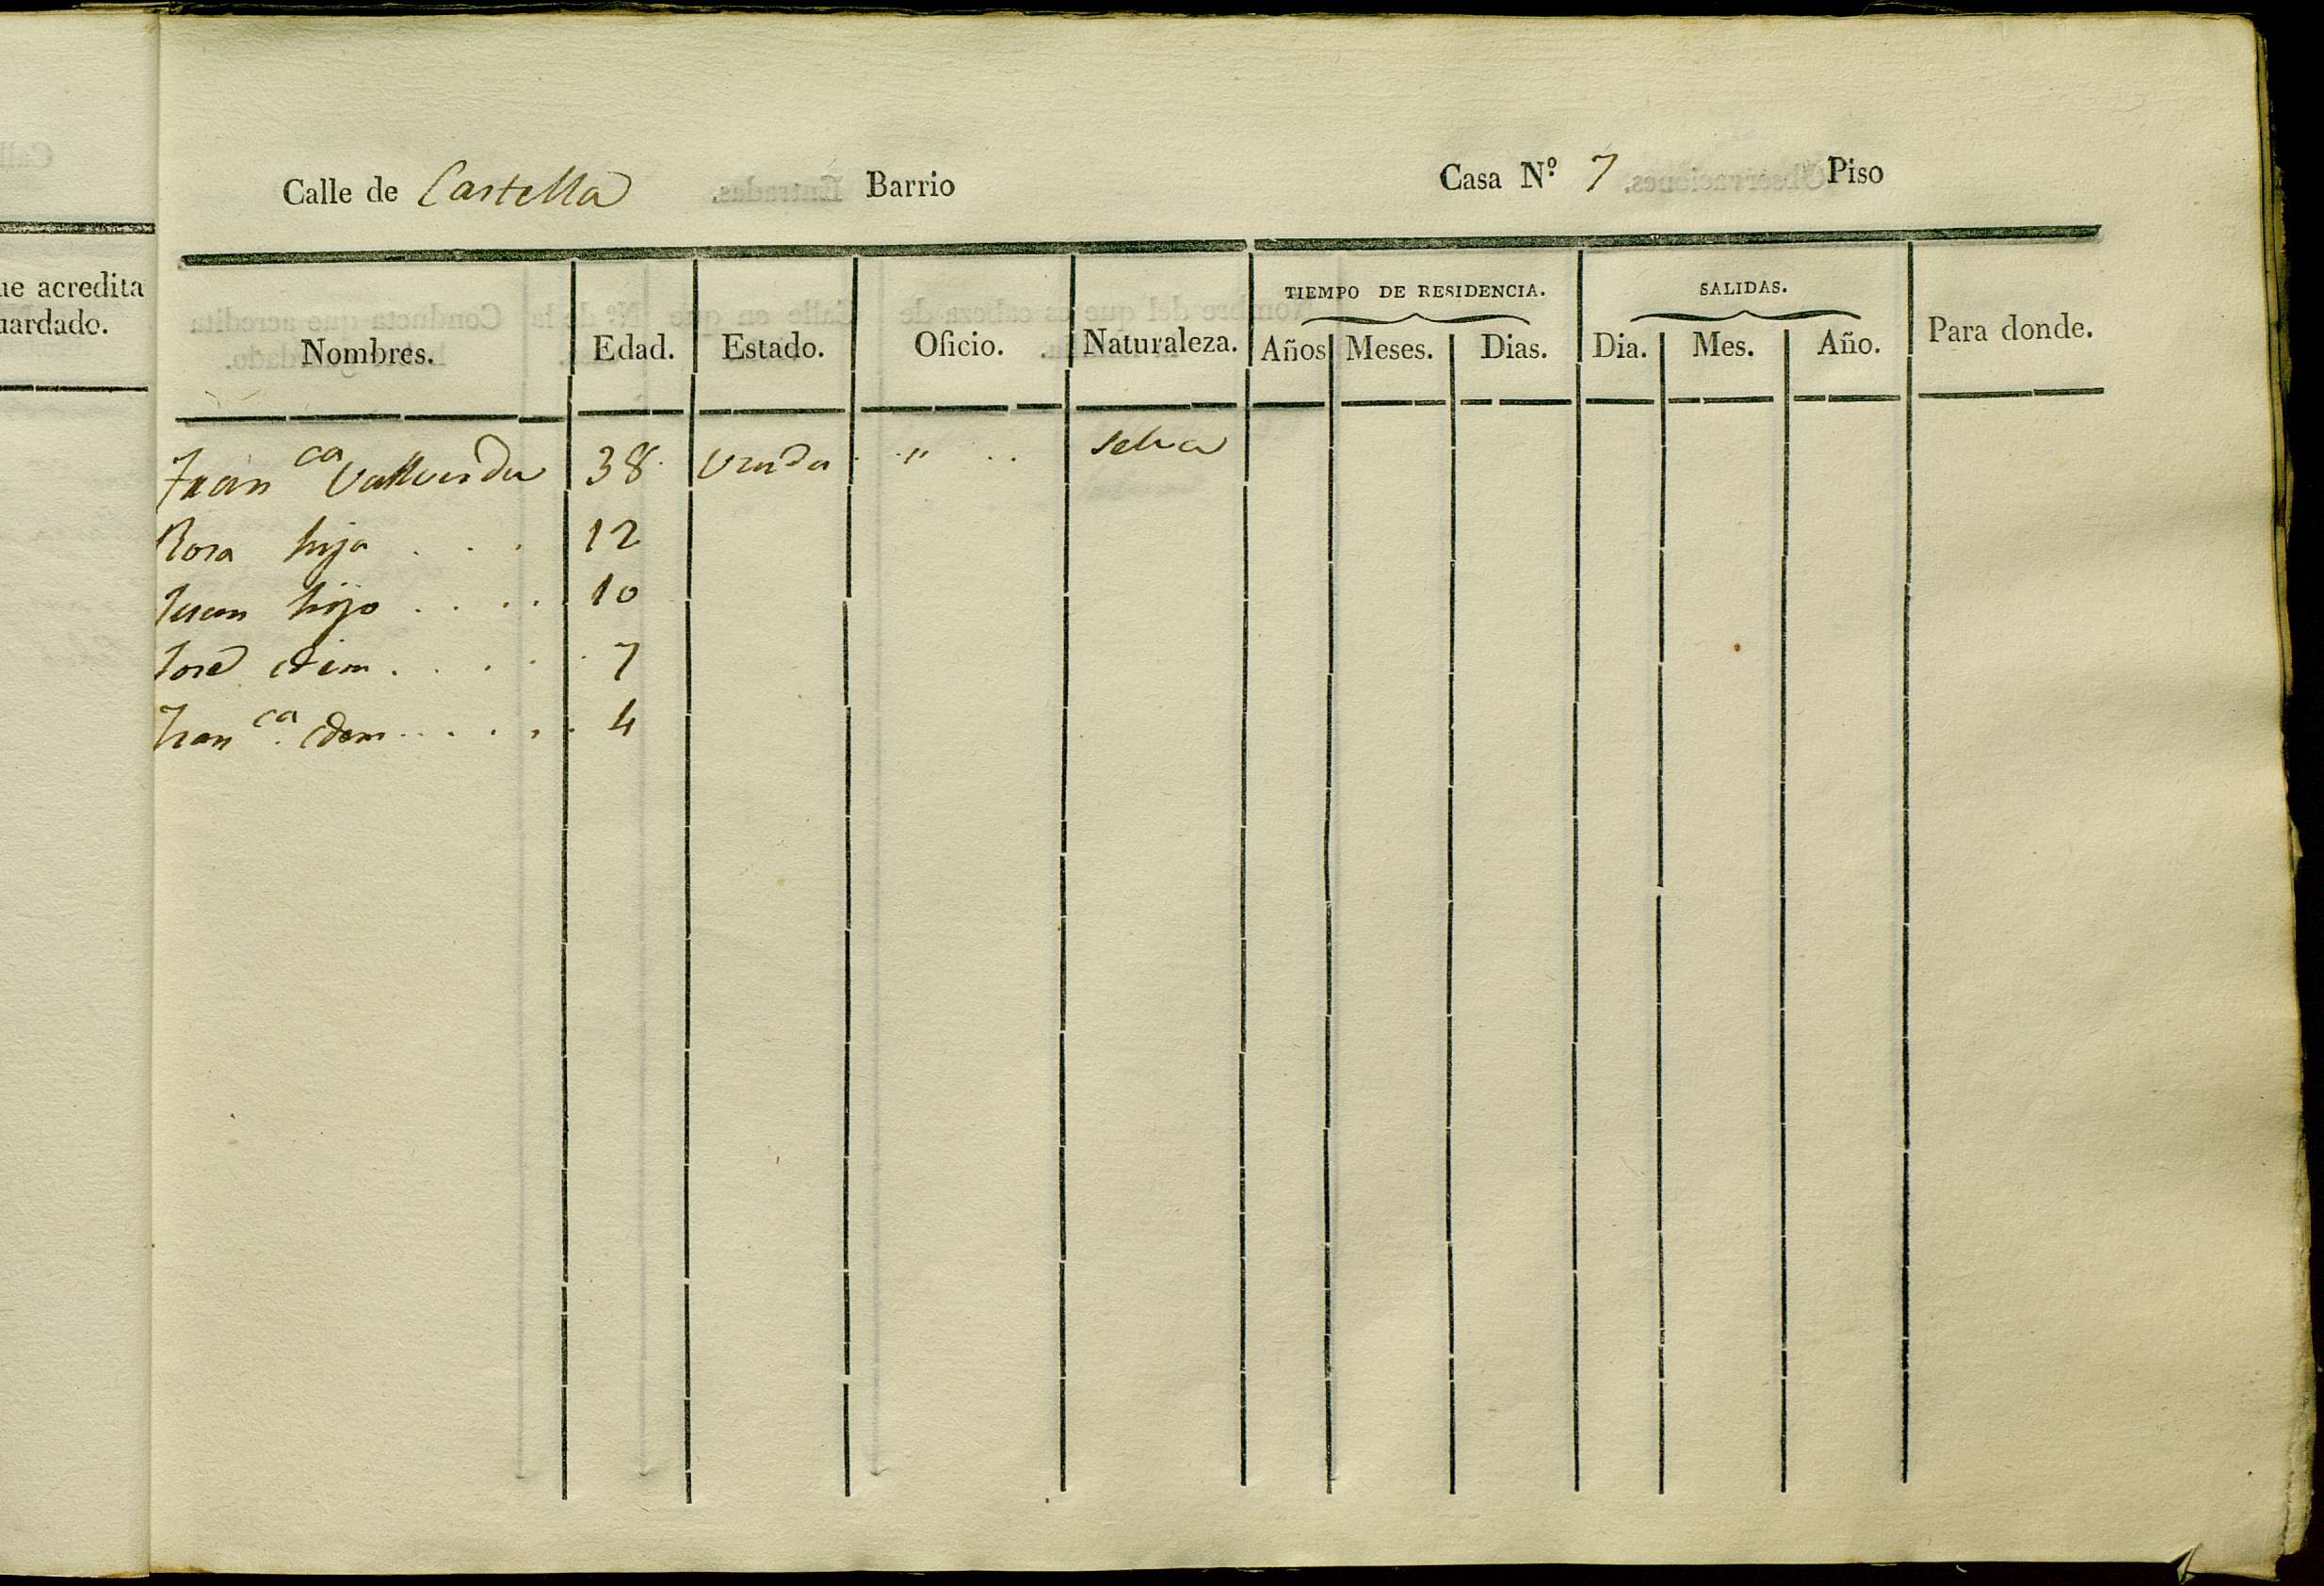 ue acredita
uardado.
Calle de Castella Barrio Casa N.º 7 Piso
TIEMPO DE RESIDENCIA. SALIDAS.
Nombres. Edad. Estado. Oficio. Naturaleza. Años Meses. Dias. Dia. Mes. Año. Para donde.
Fran ca Vallverdu 38. Viuda . . " . . Selva
Rosa hija . . . 12
Juan hijo . . . . 10
José idem . . . . . 7
Fran ca. idem . . . . . . 4